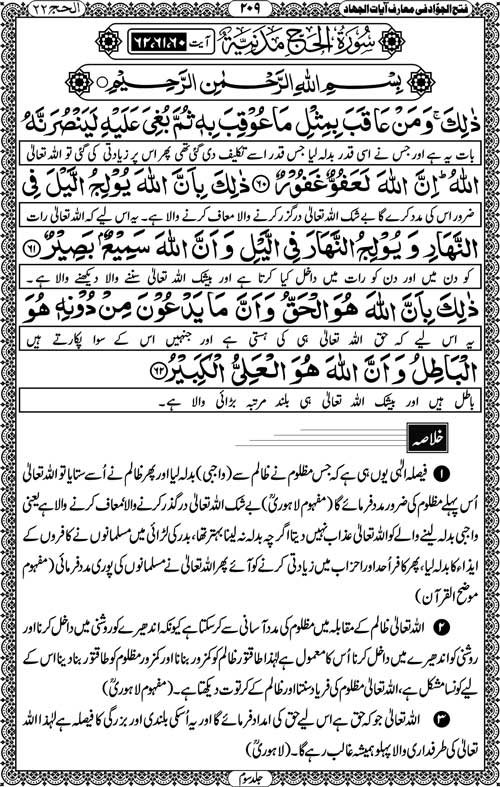 فتح الجوّاد فی معارف آیات الجهاد
۲۰۹
الحج ۲۲
سُوْرَةُ الْحَجِّ مَدَنِيَّةٌ آیت ۶۲،۶۱،۶۰
بِسْمِ اللهِ الرَّحْمٰنِ الرَّحِيْمِ
ذٰلِكَ ۚ وَمَنْ عَاقَبَ بِمِثْلِ مَا عُوْقِبَ بِهٖ ثُمَّ بُغِيَ عَلَيْهِ لَيَنْصُرَنَّهُ
بات یہ ہے اور جس نے اسی قدر بدلہ لیا جس قدر اسے تکلیف دی گئی تھی پھر اس پر زیادتی کی گئی تو اللہ تعالیٰ
اللهُ ؕ اِنَّ اللهَ لَعَفُوٌّ غَفُوْرٌ ۶۰ ذٰلِكَ بِاَنَّ اللهَ يُوْلِجُ الَّيْلَ فِي
ضرور اس کی مدد کرے گا بے شک اللہ تعالیٰ درگزر کرنے والا معاف کرنے والا ہے۔ یہ اس لیے کہ اللہ تعالیٰ رات
النَّهَارِ وَيُوْلِجُ النَّهَارَ فِي الَّيْلِ وَاَنَّ اللهَ سَمِيْعٌۢ بَصِيْرٌ ۶۱
کو دن میں اور دن کو رات میں داخل کیا کرتا ہے اور بیشک اللہ تعالیٰ سننے والا دیکھنے والا ہے۔
ذٰلِكَ بِاَنَّ اللهَ هُوَ الْحَقُّ وَاَنَّ مَا يَدْعُوْنَ مِنْ دُوْنِهٖ هُوَ
یہ اس لیے کہ حق اللہ تعالیٰ ہی کی ہستی ہے اور جنہیں اس کے سوا پکارتے ہیں
الْبَاطِلُ وَاَنَّ اللهَ هُوَ الْعَلِيُّ الْكَبِيْرُ ۶۲
باطل ہیں اور بیشک اللہ تعالیٰ ہی بلند مرتبہ بڑائی والا ہے۔
خلاصہ
۱ فیصلہ الٰہی یوں ہی ہے کہ جس مظلوم نے ظالم سے (واجبی) بدلہ لیا اور پھر ظالم نے اُسے ستایا تو اللہ تعالیٰ
اُس پہلے مظلوم کی ضرور مدد فرمائے گا (مفہوم لاہوریؒ) بے شک اللہ تعالیٰ درگذر کرنے والا معاف کرنے والا ہے یعنی
واجبی بدلہ لینے والے کو اللہ تعالیٰ عذاب نہیں دیتا اگرچہ بدلہ نہ لینا بہتر تھا، بدر کی لڑائی میں مسلمانوں نے کافروں کے
ایذاء کا بدلہ لیا، پھر کافر اُحد اور احزاب میں زیادتی کرنے کو آئے پھر اللہ تعالیٰ نے مسلمانوں کی پوری مدد فرمائی (مفہوم
موضح القرآن)
۲ اللہ تعالیٰ ظالم کے مقابلہ میں مظلوم کی مدد آسانی سے کرسکتا ہے کیونکہ اندھیرے کو روشنی میں داخل کرنا اور
روشنی کو اندھیرے میں داخل کرنا اُس کا معمول ہے لہٰذا طاقتور ظالم کو کمزور بنانا اور کمزور مظلوم کو طاقتور بنا دینا اس کے
لیے کونسا مشکل ہے، اللہ تعالیٰ مظلوم کی فریاد سنتا اور ظالم کے کرتوت دیکھتا ہے۔ (مفہوم لاہوریؒ)
۳ اللہ تعالیٰ جو کہ حق ہے اس لیے حق کی امداد فرمائے گا اور یہ اُسکی بلندی اور بزرگی کا فیصلہ ہے لہٰذا اللہ
تعالیٰ کی طرفداری والا پہلو ہمیشہ غالب رہے گا۔ (لاہوریؒ)
جلد سوم